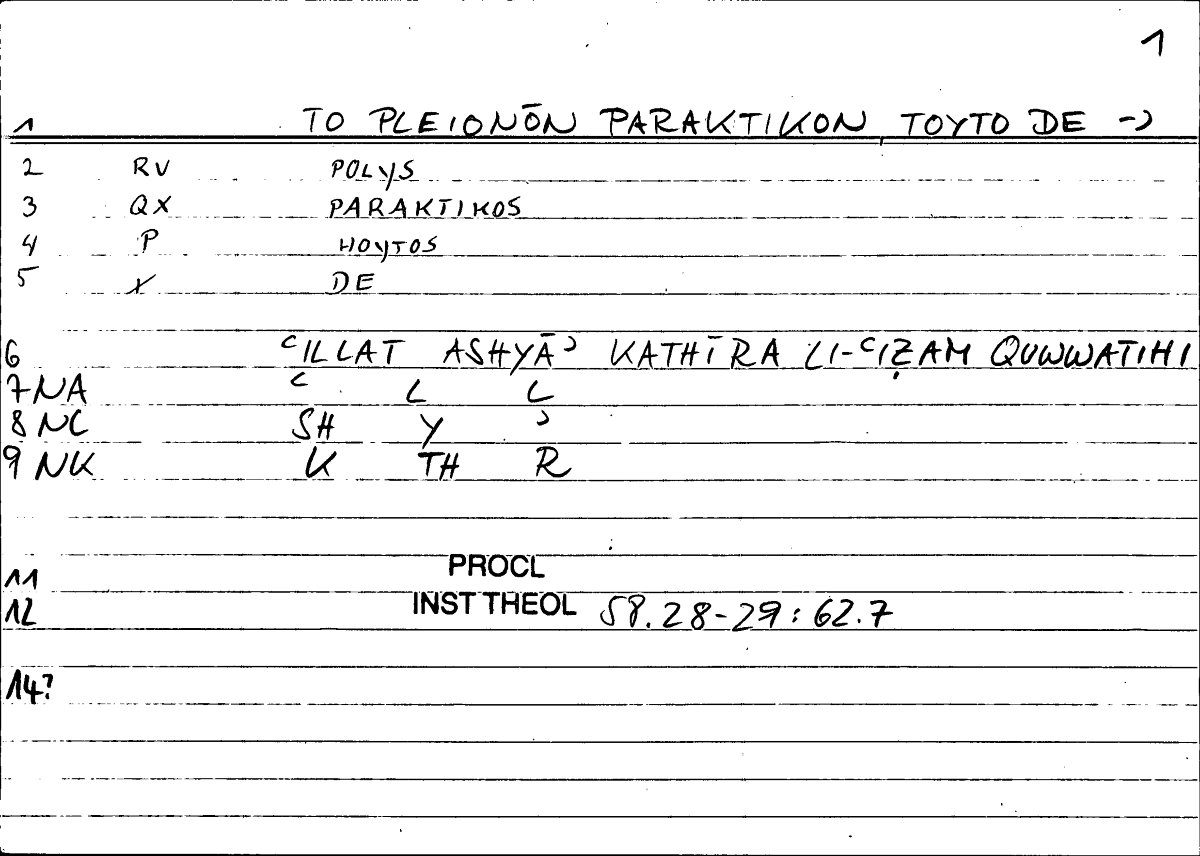 1
1 TO PLEIONŌN PARAKTIKON, TOYTO DE →
2 RV POLYS
3 QX PARAKTIKOS
4 P HOYTOS
5 X DE
6 ʿILLAT ASHYĀʾ KATHĪRA LI-ʿIẒAM QUWWATIHI
7 NA ʿ L L
8 NC SH Y ʾ
9 NK K TH R
11 PROCL
12 INST THEOL 58.28-29 : 62.7
14?